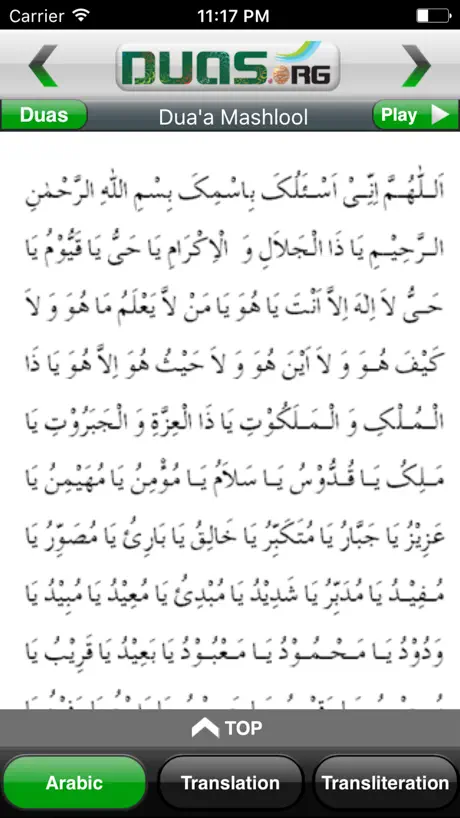 Carrier 11:17 PM
DUAS.ORG
Duas Dua'a Mashlool Play
اَللّٰهُمَّ اِنِّىْ اَسْئَلُكَ بِاسْمِكَ بِسْمِ اللهِ الرَّحْمٰنِ
الرَّحِيْمِ يَا ذَا الْجَلَالِ وَ الْاِكْرَامِ يَا حَىُّ يَا قَيُّوْمُ يَا
حَىُّ لَا اِلٰهَ اِلاَّ اَنْتَ يَا هُوَ يَا مَنْ لاَّ يَعْلَمُ مَا هُوَ وَ لَا
كَيْفَ هُوَ وَ لَا اَيْنَ هُوَ وَ لَا حَيْثُ هُوَ اِلاَّ هُوَ يَا ذَا
الْمُلْكِ وَ الْمَلَكُوْتِ يَا ذَا الْعِزَّةِ وَ الْجَبَرُوْتِ يَا
مَلِكُ يَا قُدُّوْسُ يَا سَلَامُ يَا مُؤْمِنُ يَا مُهَيْمِنُ يَا
عَزِيْزُ يَا جَبَّارُ يَا مُتَكَبِّرُ يَا خَالِقُ يَا بَارِئُ يَا مُصَوِّرُ يَا
مُفِيْدُ يَا مُدَبِّرُ يَا شَدِيْدُ يَا مُبْدِئُ يَا مُعِيْدُ يَا مُبِيْدُ يَا
وَدُوْدُ يَا مَحْمُوْدُ يَا مَعْبُوْدُ يَا بَعِيْدُ يَا قَرِيْبُ يَا
TOP
Arabic Translation Transliteration